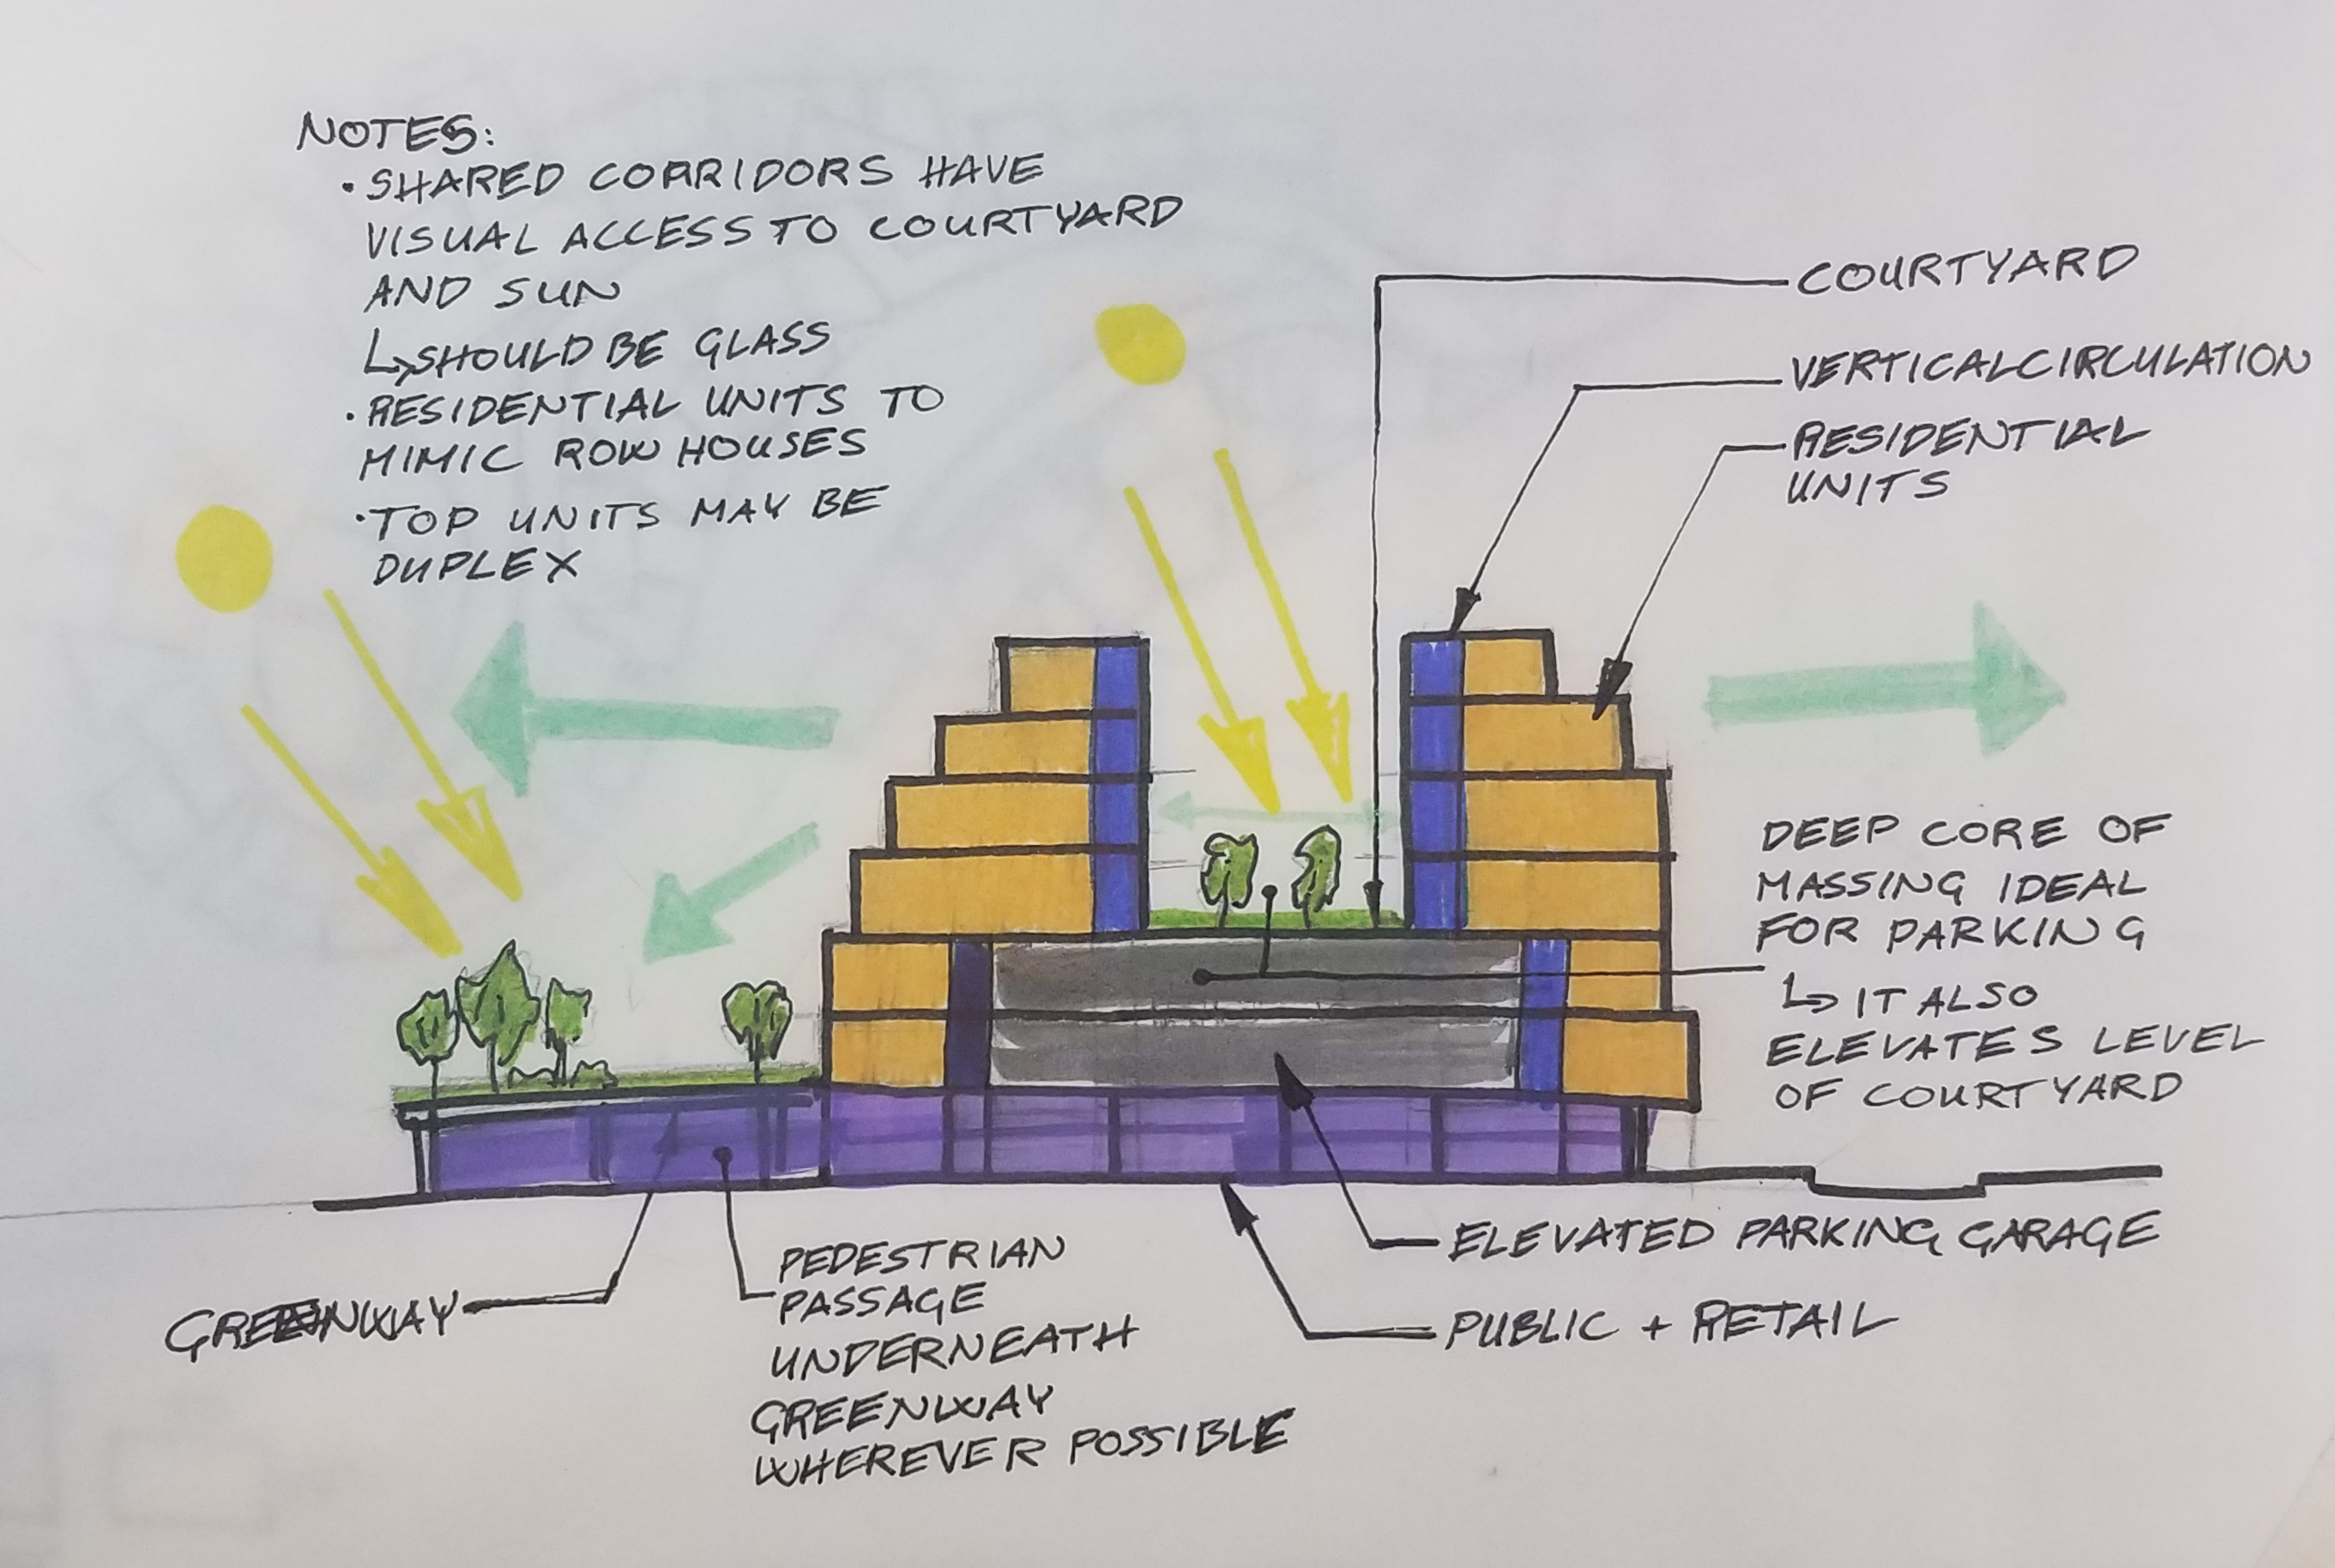 NOTES:
• SHARED CORRIDORS HAVE
VISUAL ACCESS TO COURTYARD
AND SUN
↳ SHOULD BE GLASS
• RESIDENTIAL UNITS TO
MIMIC ROW HOUSES
• TOP UNITS MAY BE
DUPLEX
COURTYARD
VERTICAL CIRCULATION
RESIDENTIAL
UNITS
DEEP CORE OF
MASSING IDEAL
FOR PARKING
↳ IT ALSO
ELEVATES LEVEL
OF COURTYARD
ELEVATED PARKING GARAGE
PUBLIC + RETAIL
PEDESTRIAN
PASSAGE
UNDERNEATH
GREENWAY
WHEREVER POSSIBLE
GREENWAY